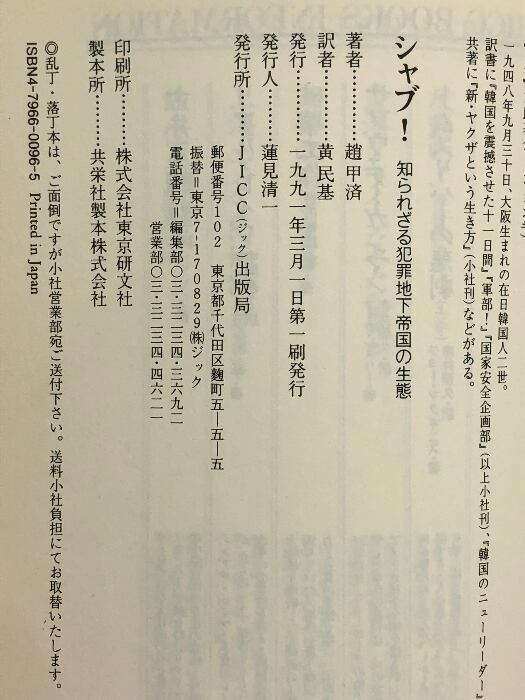 一九四八年九月三十日、大阪生まれの在日韓国人二世。
訳書に『韓国を震撼させた十一日間』『軍部!』『国家安全企画部』(以上小社刊)、『韓国のニューリーダー』
共著に『新・ヤクザという生き方』(小社刊)などがある。
シャブ! 知られざる犯罪地下帝国の生態
著者………趙甲済
訳者………黄民基
発行………一九九一年三月一日第一刷発行
発行人………蓮見清一
発行所………JICC(ジック)出版局
郵便番号102 東京都千代田区麴町五―五―五
振替=東京7-170829㈱ジック
電話番号=編集部〇三・三二三四・三六九二
営業部〇三・三二三四・四六二一
印刷所………株式会社東京研文社
製本所………共栄社製本株式会社
◎乱丁・落丁本は、ご面倒ですが小社営業部宛ご送付下さい。送料小社負担にてお取替いたします。
ISBN4-7966-0096-5 Printed in Japan